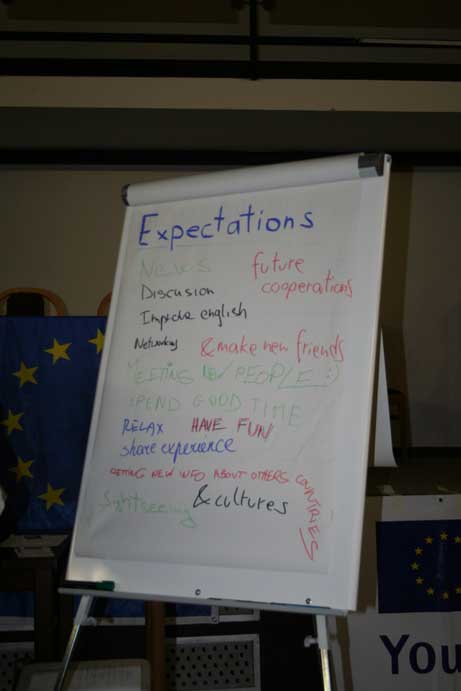 Expectations
News
future
cooperations
Discusion
Improve english
Networking
& make new friends
MEETING NEW PEOPLE :)
SPEND GOOD TIME
RELAX HAVE FUN
share experience
GETTING NEW INFO ABOUT OTHERS COUNTRIES
Sightseeing
& cultures
You